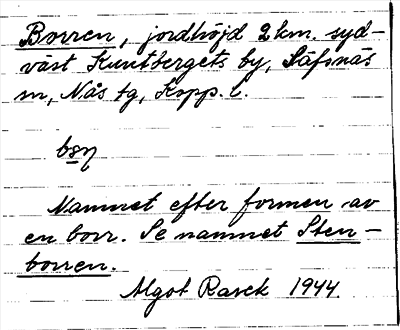 Borren, jordhöjd 2 km. syd-
väst Kuntbergets by, Säfsnäs
sn, Nås tg, Kopp. l.
Namnet efter formen av
en borr. Se namnet Sten-
borren.
Algot Rasck 1944